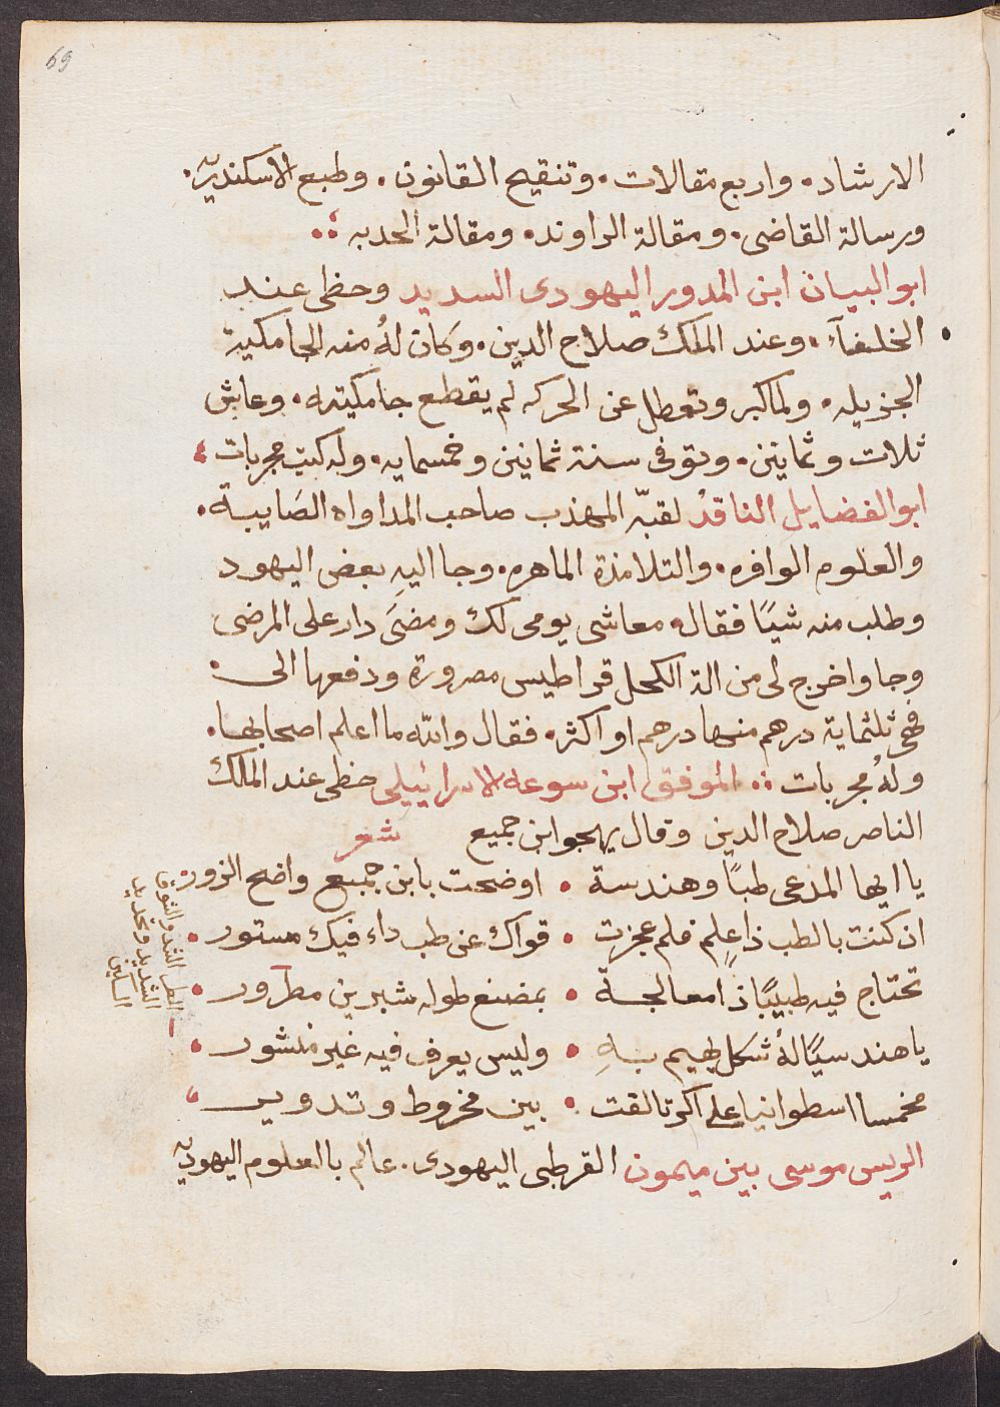 69
الارشاد. واربع مقالات. وتنقيح القانون. وطبع الاسكندريه.
ورسالة القاضى. ومقالة الراوند. ومقالة الحدبه
ابو البيان ابن المدور اليهودى السديد وحظى عند
الخلفآء. وعند الملك صلاح الدين. وكان لهُ منه الجامكية
الجزيله. ولما كبر وتعطل عن الحركه لم يقطع جامكيته. وعاش
ثلاث وثمانين. وتوفى سنة ثمانين وخمسمايه. وله كتب مجربات
ابو الفضايل الناقدُ لقبّه المهذب صاحب المداواه الصَايبة.
والعلوم الوافره. والتلامذة الماهره. وجا اليهِ بعض اليهود
وطلب منه شيًا فقال معاشى يومى لك ومضَى دار على المرضى
وجا واخرج لى من الة الكحل قراطيس مصرورة ودفعها الى.
فهى ثلثماية درهم منها درهم او اكثر. فقال والله ما اعلم اصحابها.
ولهُ مجربات الموفق ابن سوعه الاسرائيلى حظى عند المالك
الناصر صلاح الدين وقال يهجو ابن جميع شعر
يا ايها المدعى طبًا وهندسة • اوضحت يابن جميع واضح الزور
ان كنت بالطب ذا علمٍ فلم عجزت • قواك عن طب داء فيك مستور •
تحتاج فيه طبيبًا ذا معالجة • بمضبع طوله شبرين مطرور •
يا هندسيًا لهُ شكل يهيم بهِ • وليس يعرف فيه غير منشور •
مخمسا اسطوانيا على اكر تالفت • بين مخروط وتدوير
الريس موسى بين ميمون القرطبى اليهودى. عالم بالعلوم اليهوديه
الشديد وتحديد